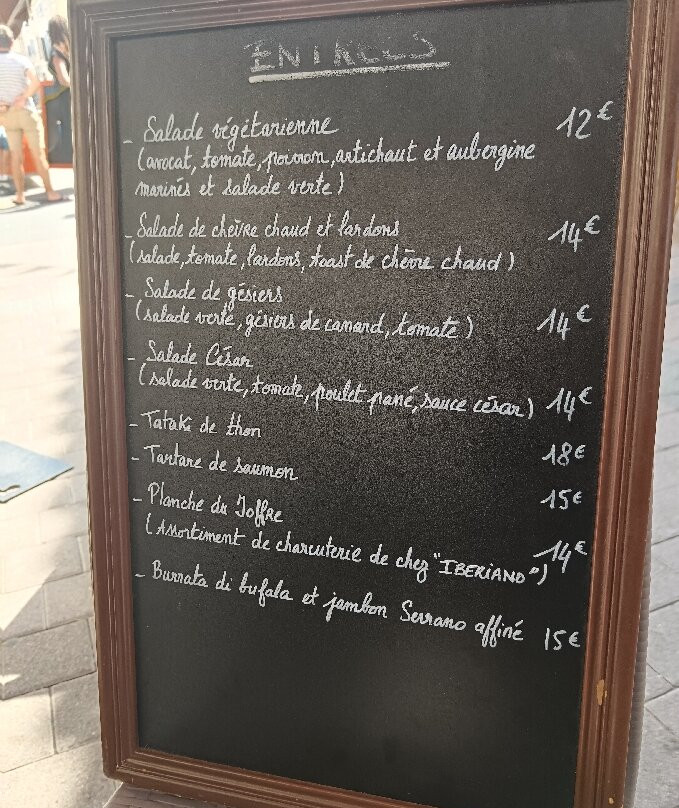 ENTRÉES
- Salade végétarienne 12€
(avocat, tomate, poivron, artichaut et aubergine
marinés et salade verte)
- Salade de chèvre chaud et lardons 14€
(salade, tomate, lardons, toast de chèvre chaud)
- Salade de gésiers
(salade verte, gésiers de canard, tomate) 14€
- Salade César
(salade verte, tomate, poulet pané, sauce césar) 14€
- Tataki de thon 18€
- Tartare de saumon 15€
- Planche du Joffre
(Assortiment de charcuterie de chez "IBERIANO") 14€
- Burrata di bufala et jambon Serrano affiné 15€